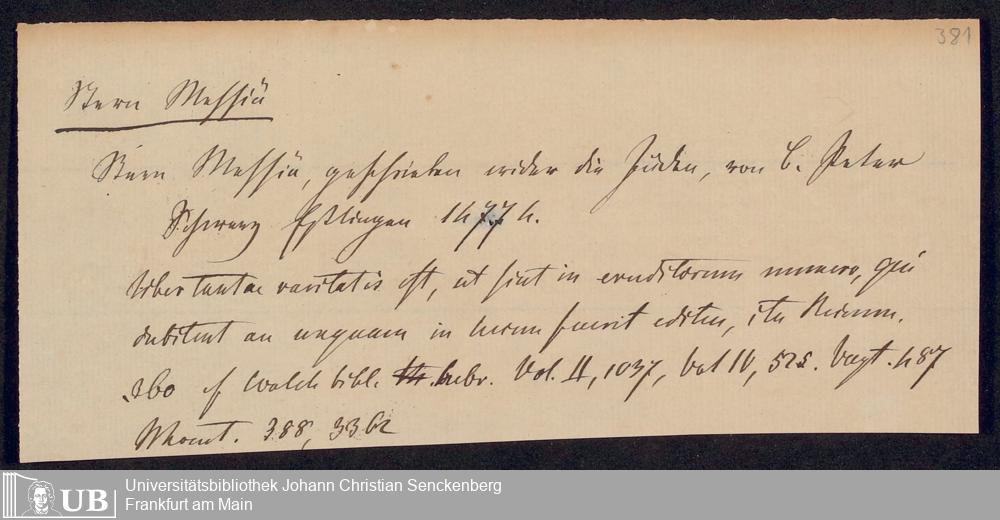 381
Stern Messiä
Stern Messiä, geschrieben wider die Juden, von B. Peter
Schwarz Esslingen 1477 4.
Liber tantae raritatis est, ut sint in eruditorum numero, qui
dubitent an unquam in lucem fuerit editus, ita
cf Wolch bibl. hebr. Vol. II, 1037, Vol IV, 525. Vogt. 487
388, 33
UB
Universitätsbibliothek Johann Christian Senckenberg
Frankfurt am Main